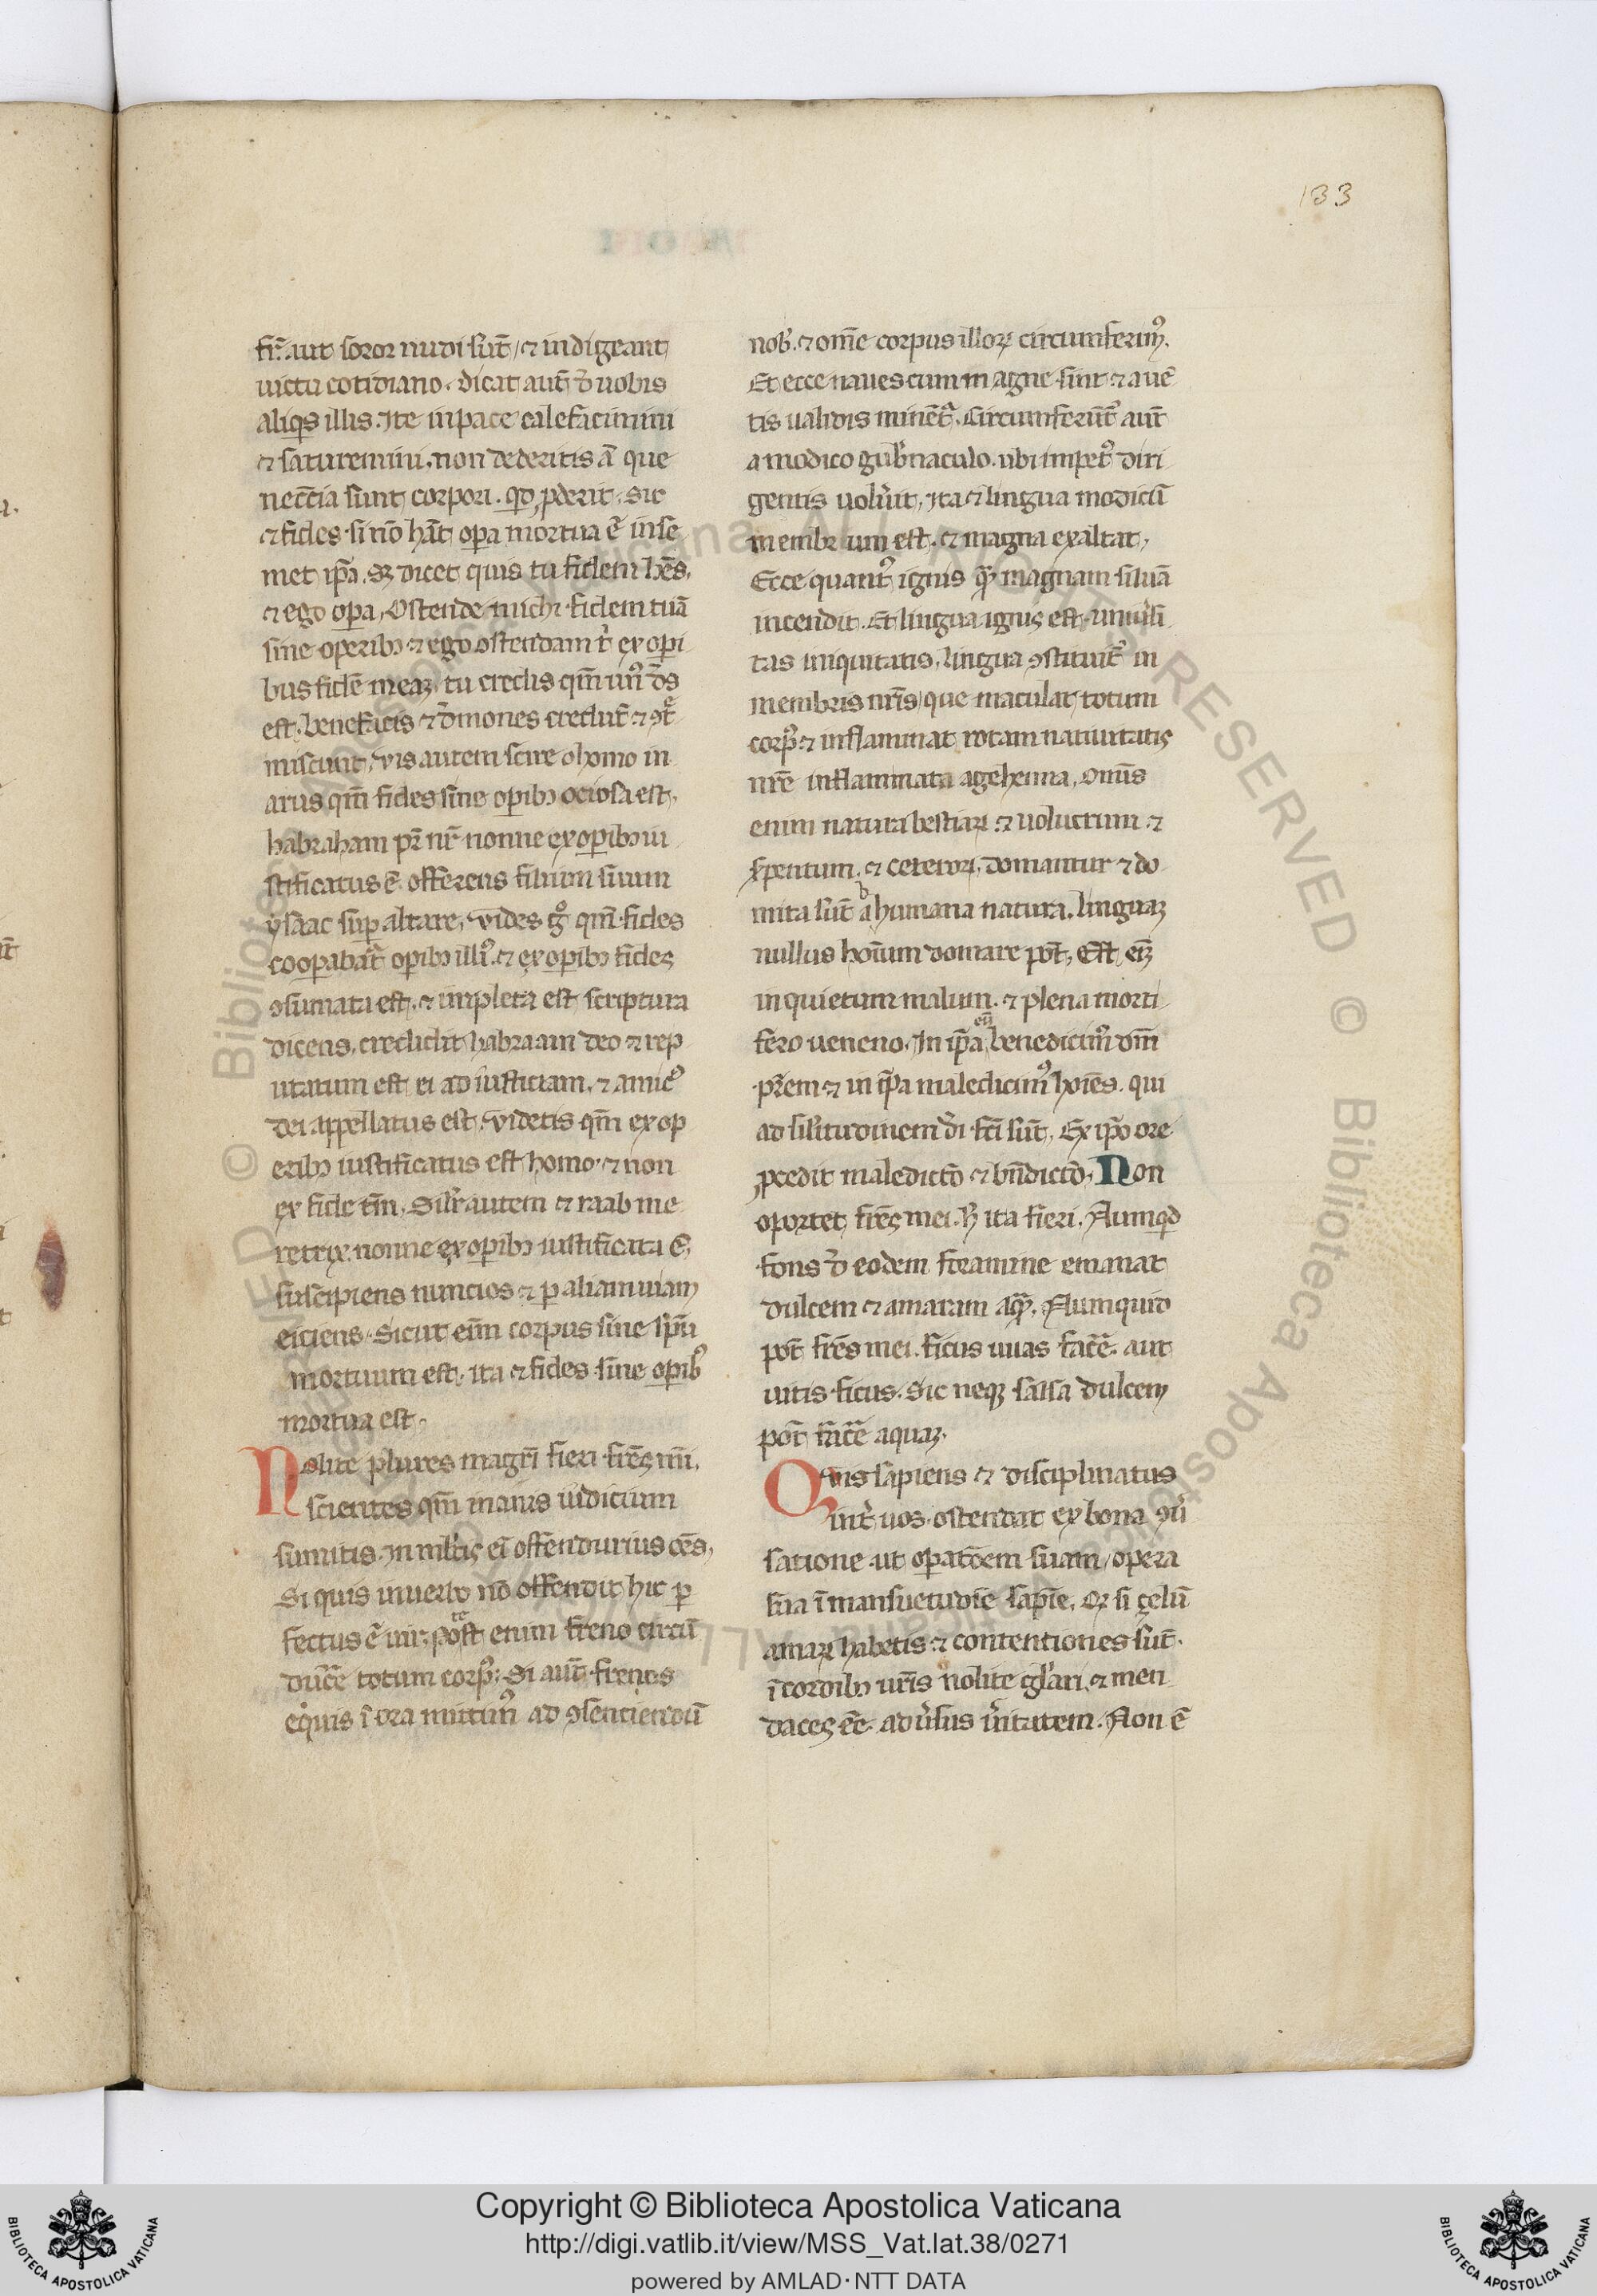 133
fr̄. aut soror nudi sūt, ⁊ indigeant
uictu cotidiano. dicat aut̄ d̄ uobis
aliqis illis. Ite in pace calefacimini
⁊ saturemini. non dederitis ā que
neccīa sunt corpori. qd ꝓderit. Sic
⁊ fides si nō hāt opa mortua ē in se
met ip̄a. Sꝫ dicet quis tu fidem hēs,
⁊ ego opa, Ostende michi fidem tuā
sine operibꝫ ⁊ ego ostendam t̄ ex opi
bus fidē meaꝫ, tu credis qm̄ unꝰ ds̄
est. benefacis ⁊ dmones credūt ⁊ ꝯt̄
miscunt, vis autem scire o homo in
anis qm̄ fides sine opibꝫ ociosa est,
habraham pr̄ nr̄ nonne ex opibꝫ iu
stificatus ē. offerens filium suum
ysaac sup altare, vides gͦ qm̄ fides
coopabat̄ opibꝫ illiꝰ. ⁊ ex opibꝫ fides
ꝯsumata est. ⁊ impleta est scriptura
dicens, credidit habraam deo ⁊ rep
utatum est ei ad iusticiam, ⁊ amicꝰ
dei appellatus est. videtis qm̄ ex op
eribꝫ iustificatus est homo. ⁊ non
ex fide tm̄, Silr̄ autem ⁊ raab me
retrix nonne ex opibꝫ iustificata ē,
suscipiens nuncios ⁊ ꝑ aliam uiam
eiciens. Sicut eīm corpus sine sp̄u
mortuum est, ita ⁊ fides sine opibꝰ
mortua est.
Nolite plures magr̄i fieri frēs m̄i,
scientes qm̄ maius iudicium
sumitis. In mltis ei offendimus oēs,
Si quis in uerbo nō offendit hic ꝑ
te
fectus ē uir, post enim freno circū
ducē totum corpꝰ: Si aut̄ frenos
equis ī ora mittimꝰ ad ꝯsentiendū
nob̄. ⁊ om̄e corpus illoꝝ circumferimꝰ.
Et ecce naues cum magne sint ⁊ auē
tis ualidis minēt̄. Circumferūt̄ aut̄
a modico gub̄naculo. ubi impetꝰ diri
gentis uolūit, Ita ⁊ lingua modicū
membrum est. ⁊ magna exaltat,
Ecce quantꝰ ignis q̄ magnam siluā
incendit. Et lingua ignis est. uniusi
tas iniquitatis, lingua ꝯstituit̄ in
membris nr̄is, que maculat totum
corpꝰ ⁊ inflammat rotam natiuitatis
nr̄e inflammata a gehenna, Omīs
enim natura bestiaꝝ ⁊ uolucrum ⁊
s̄pentum. ⁊ ceteroꝝ, domantur ⁊ do
b
mita sūt a humana natura. linguaꝫ
nullus hoīum domare pōt, Est eīꝫ
inquietum malum. ⁊ plena morti
eū
fero ueneno. In ip̄a benedicimꝰ dm̄
prem ⁊ in ip̄a maledicimꝰ hoīes. qui
ad silitudinem dī fc̄i sūt, Ex ip̄o ore
ꝓcedit maledictō ⁊ bn̄dictō. Non
oportet frēs mei. h̄ ita fieri. Numqd
fons d̄ eodem foramine emanat
dulcem ⁊ amaram aquā, Numquid
pōt frēs mei. ficus uuas facē. aut
uitis ficus. Sic neqꝫ salsa dulcem
pōt facē aquaꝫ.
Quis sapiens ⁊ disciplinatus
int̄ uos. ostendat ex bona ꝯū
satione ut opatōem suam, opera
sua ī mansuetudīe sapīe, Qꝫ si çelū
amaꝝ habetis ⁊ contentiones sūt.
ī cordibꝫ ur̄is nolite glari, ⁊ men
daces ēē. adūsus ūitatem. Non ē
Copyright © Biblioteca Apostolica Vaticana
http://digi.vatlib.it/view/MSS_Vat.lat.38/0271
powered by AMLAD·NTT DATA
BIBLIOTECA APOSTOLICA VATICANA
BIBLIOTECA APOSTOLICA VATICANA